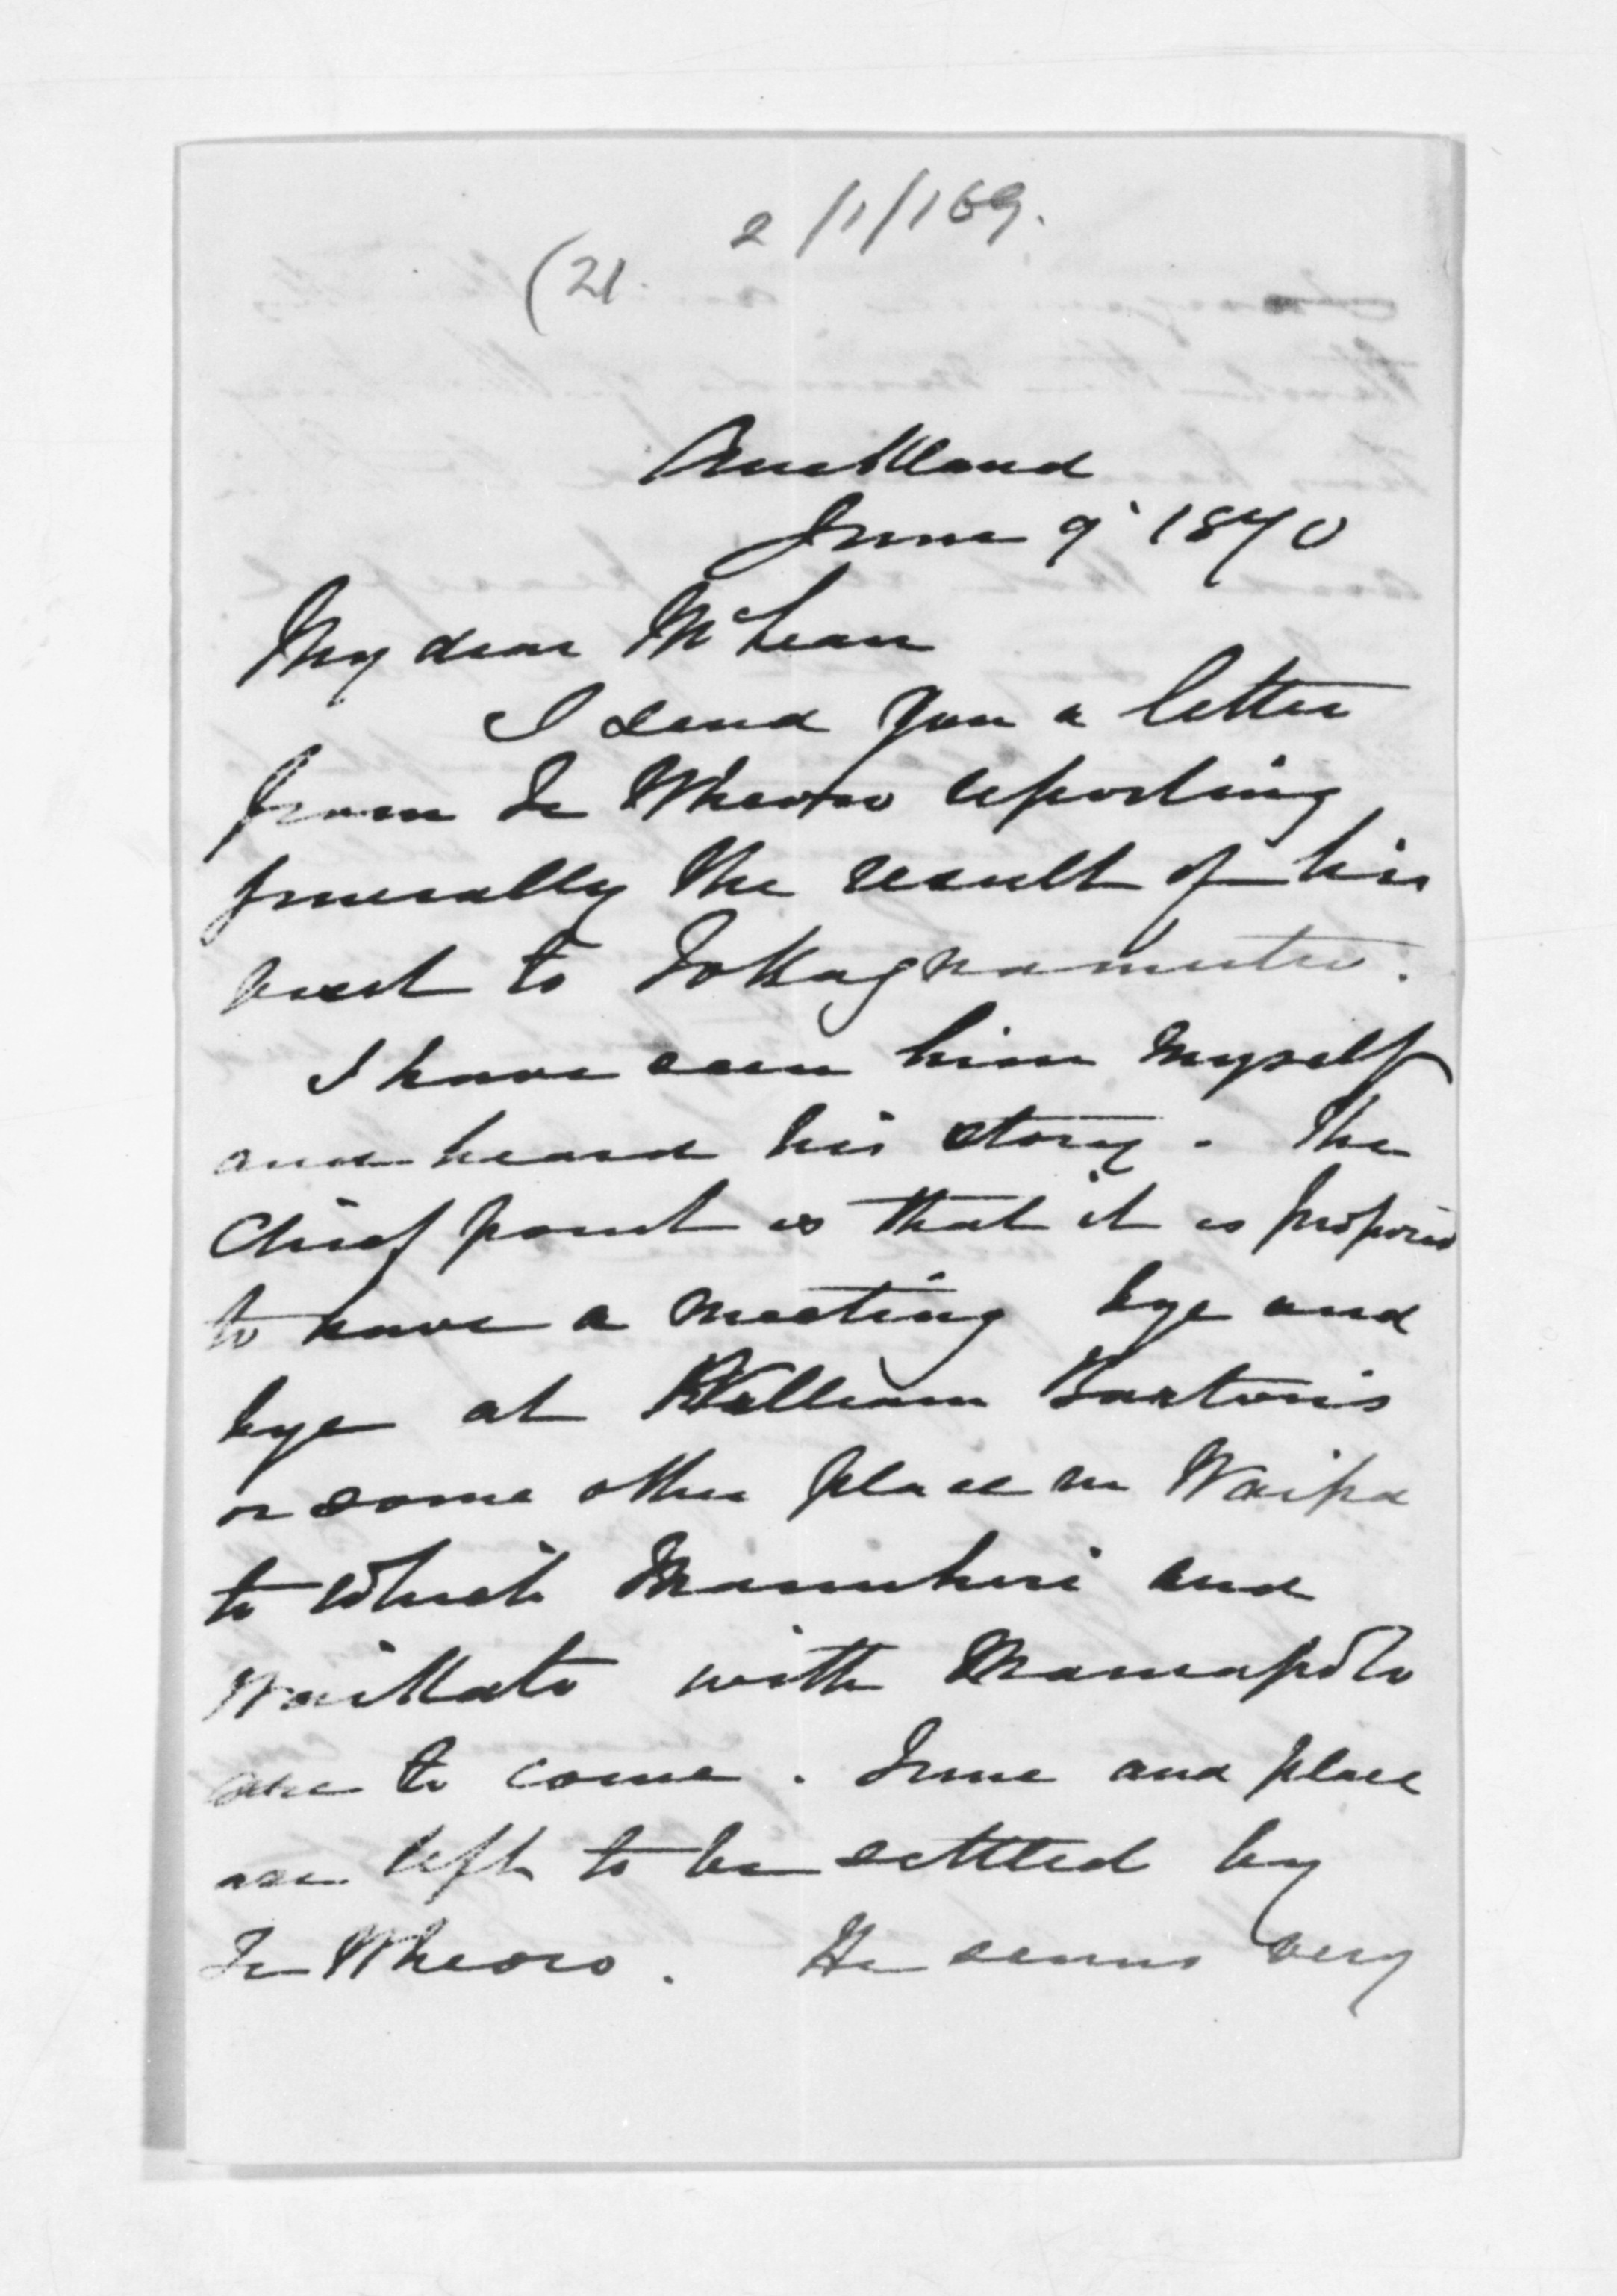 2/1/169.
(21.
Auckland
June 9 1870
My dear McLean
I send you a letter
from Te Wheoro reporting
generally the result of his
visit to Tokagnamutu.
I have seen him myself
and heard his story. The
Chief point is that it is proposed
to have a meeting bye and
bye at William Barton's
or some other place in Waipa
to which Manuhiri and
Waikato with Maniapoto
are to come. Time and place
are left to be settled by
Te Wheoro. He seems very